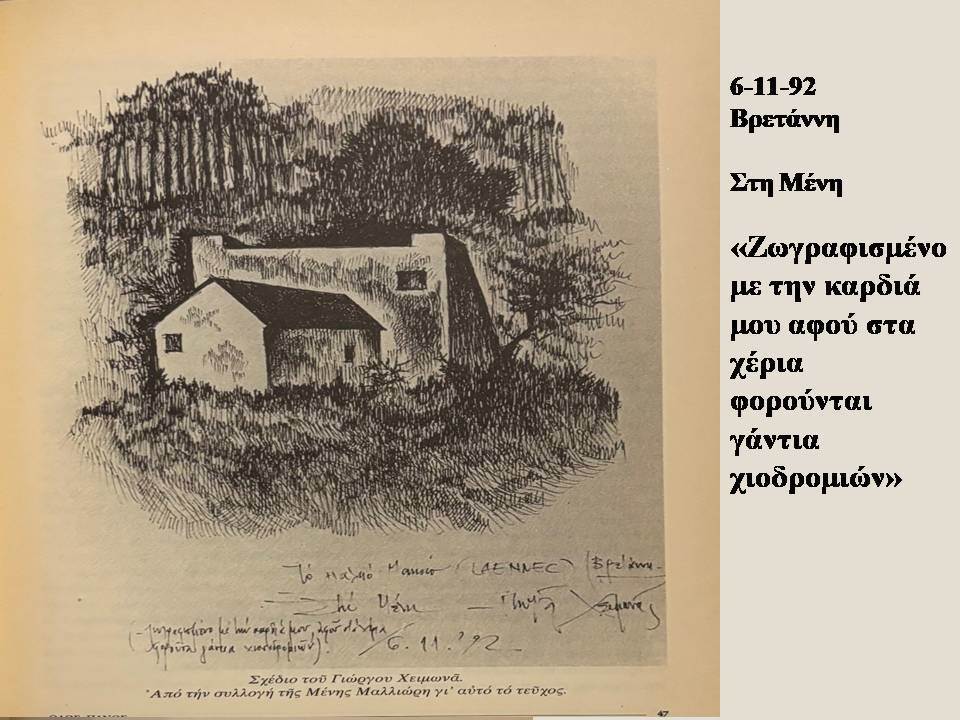 Τό παλιό (LAENNEC) Βρετάννη
Στή Μένη
(Ζωγραφισμένο με την καρδιά μου, αφού στα χέρια
φορούνται γάντια χιοδρομιών). 6.11.'92
Σχέδιο τοῦ Γιώργου Χειμωνᾶ.
Ἀπό τήν συλλογή τῆς Μένης Μαλλιώρη γι' αὐτό τό τεῦχος.
47
6-11-92
Βρετάννη
Στη Μένη
«Ζωγραφισμένο
με την καρδιά
μου αφού στα
χέρια
φορούνται
γάντια
χιοδρομιών»